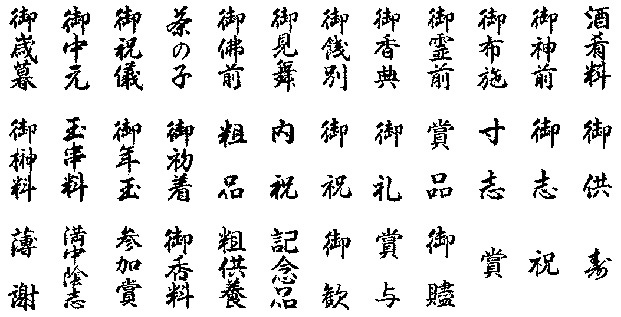 酒肴料
御神前
御布施
御霊前
御香典
御餞別
御見舞
御佛前
茶の子
御祝儀
御中元
御歳暮
御供
御志
寸志
賞品
御礼
御祝
内祝
粗品
御初着
御年玉
玉串料
御榊料
寿
祝
賞
御賍
賞与
御歓
記念品
粗供養
御香料
参加賞
満中陰志
薄謝